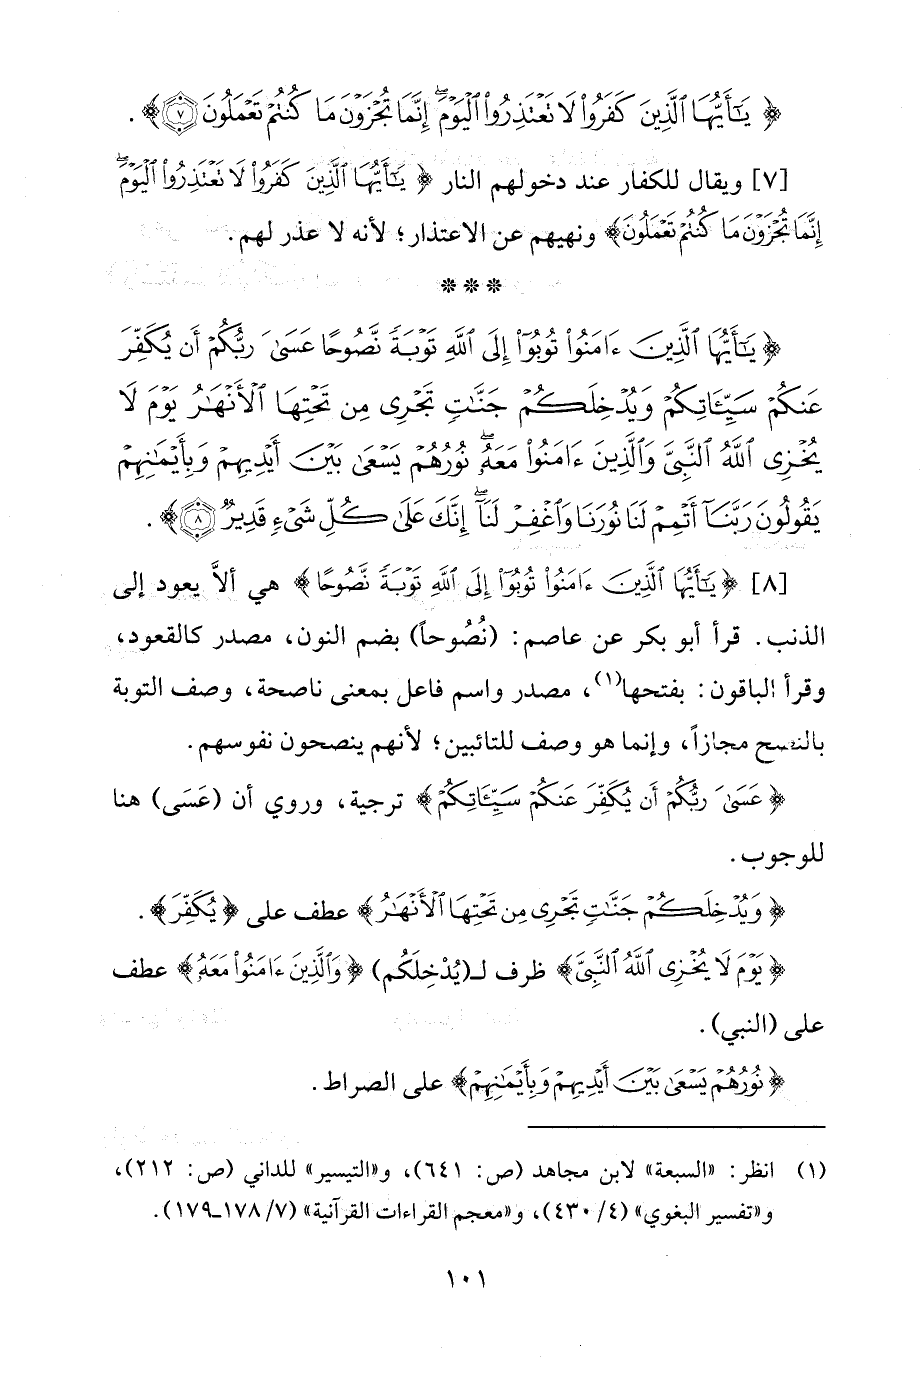 ﴿ يَٰٓأَيُّهَا ٱلَّذِينَ كَفَرُوا۟ لَا تَعْتَذِرُوا۟ ٱلْيَوْمَ ۖ إِنَّمَا تُجْزَوْنَ مَا كُنتُمْ تَعْمَلُونَ ﴿٧﴾ ﴾ .
[٧] ويقال للكفار عند دخولهم النار ﴿ يَٰٓأَيُّهَا ٱلَّذِينَ كَفَرُوا۟ لَا تَعْتَذِرُوا۟ ٱلْيَوْمَ ۖ
إِنَّمَا تُجْزَوْنَ مَا كُنتُمْ تَعْمَلُونَ ﴾ ونهيهم عن الاعتذار؛ لأنه لا عذر لهم.
* * *
﴿ يَٰٓأَيُّهَا ٱلَّذِينَ ءَامَنُوا۟ تُوبُوٓا۟ إِلَى ٱللَّهِ تَوْبَةً نَّصُوحًا عَسَىٰ رَبُّكُمْ أَن يُكَفِّرَ
عَنكُمْ سَيِّـَٔاتِكُمْ وَيُدْخِلَكُمْ جَنَّٰتٍ تَجْرِى مِن تَحْتِهَا ٱلْأَنْهَٰرُ يَوْمَ لَا
يُخْزِى ٱللَّهُ ٱلنَّبِىَّ وَٱلَّذِينَ ءَامَنُوا۟ مَعَهُۥ ۖ نُورُهُمْ يَسْعَىٰ بَيْنَ أَيْدِيهِمْ وَبِأَيْمَٰنِهِمْ
يَقُولُونَ رَبَّنَآ أَتْمِمْ لَنَا نُورَنَا وَٱغْفِرْ لَنَآ ۖ إِنَّكَ عَلَىٰ كُلِّ شَىْءٍ قَدِيرٌ ﴿٨﴾ ﴾ .
[٨] ﴿ يَٰٓأَيُّهَا ٱلَّذِينَ ءَامَنُوا۟ تُوبُوٓا۟ إِلَى ٱللَّهِ تَوْبَةً نَّصُوحًا ﴾ هي ألاَّ يعود إلى
الذنب. قرأ أبو بكر عن عاصم: (نُصُوحاً) بضم النون، مصدر كالقعود،
وقرأ الباقون: بفتحها(١)، مصدر واسم فاعل بمعنى ناصحة، وصف التوبة
بالنصح مجازاً، وإنما هو وصف للتائبين؛ لأنهم ينصحون نفوسهم.
﴿ عَسَىٰ رَبُّكُمْ أَن يُكَفِّرَ عَنكُمْ سَيِّـَٔاتِكُمْ ﴾ ترجية، وروي أن (عَسَى) هنا
للوجوب.
﴿ وَيُدْخِلَكُمْ جَنَّٰتٍ تَجْرِى مِن تَحْتِهَا ٱلْأَنْهَٰرُ ﴾ عطف على ﴿ يُكَفِّرَ ﴾ .
﴿ يَوْمَ لَا يُخْزِى ٱللَّهُ ٱلنَّبِىَّ ﴾ ظرف لـ(يُدْخِلَكُم) ﴿ وَٱلَّذِينَ ءَامَنُوا۟ مَعَهُۥ ﴾ عطف
على (النبي).
﴿ نُورُهُمْ يَسْعَىٰ بَيْنَ أَيْدِيهِمْ وَبِأَيْمَٰنِهِمْ ﴾ على الصراط.
(١) انظر: «السبعة» لابن مجاهد (ص: ٦٤١)، و«التيسير» للداني (ص: ٢١٢)،
و«تفسير البغوي» (٤/ ٤٣٠)، و«معجم القراءات القرآنية» (٧/ ١٧٨-١٧٩).
١٠١